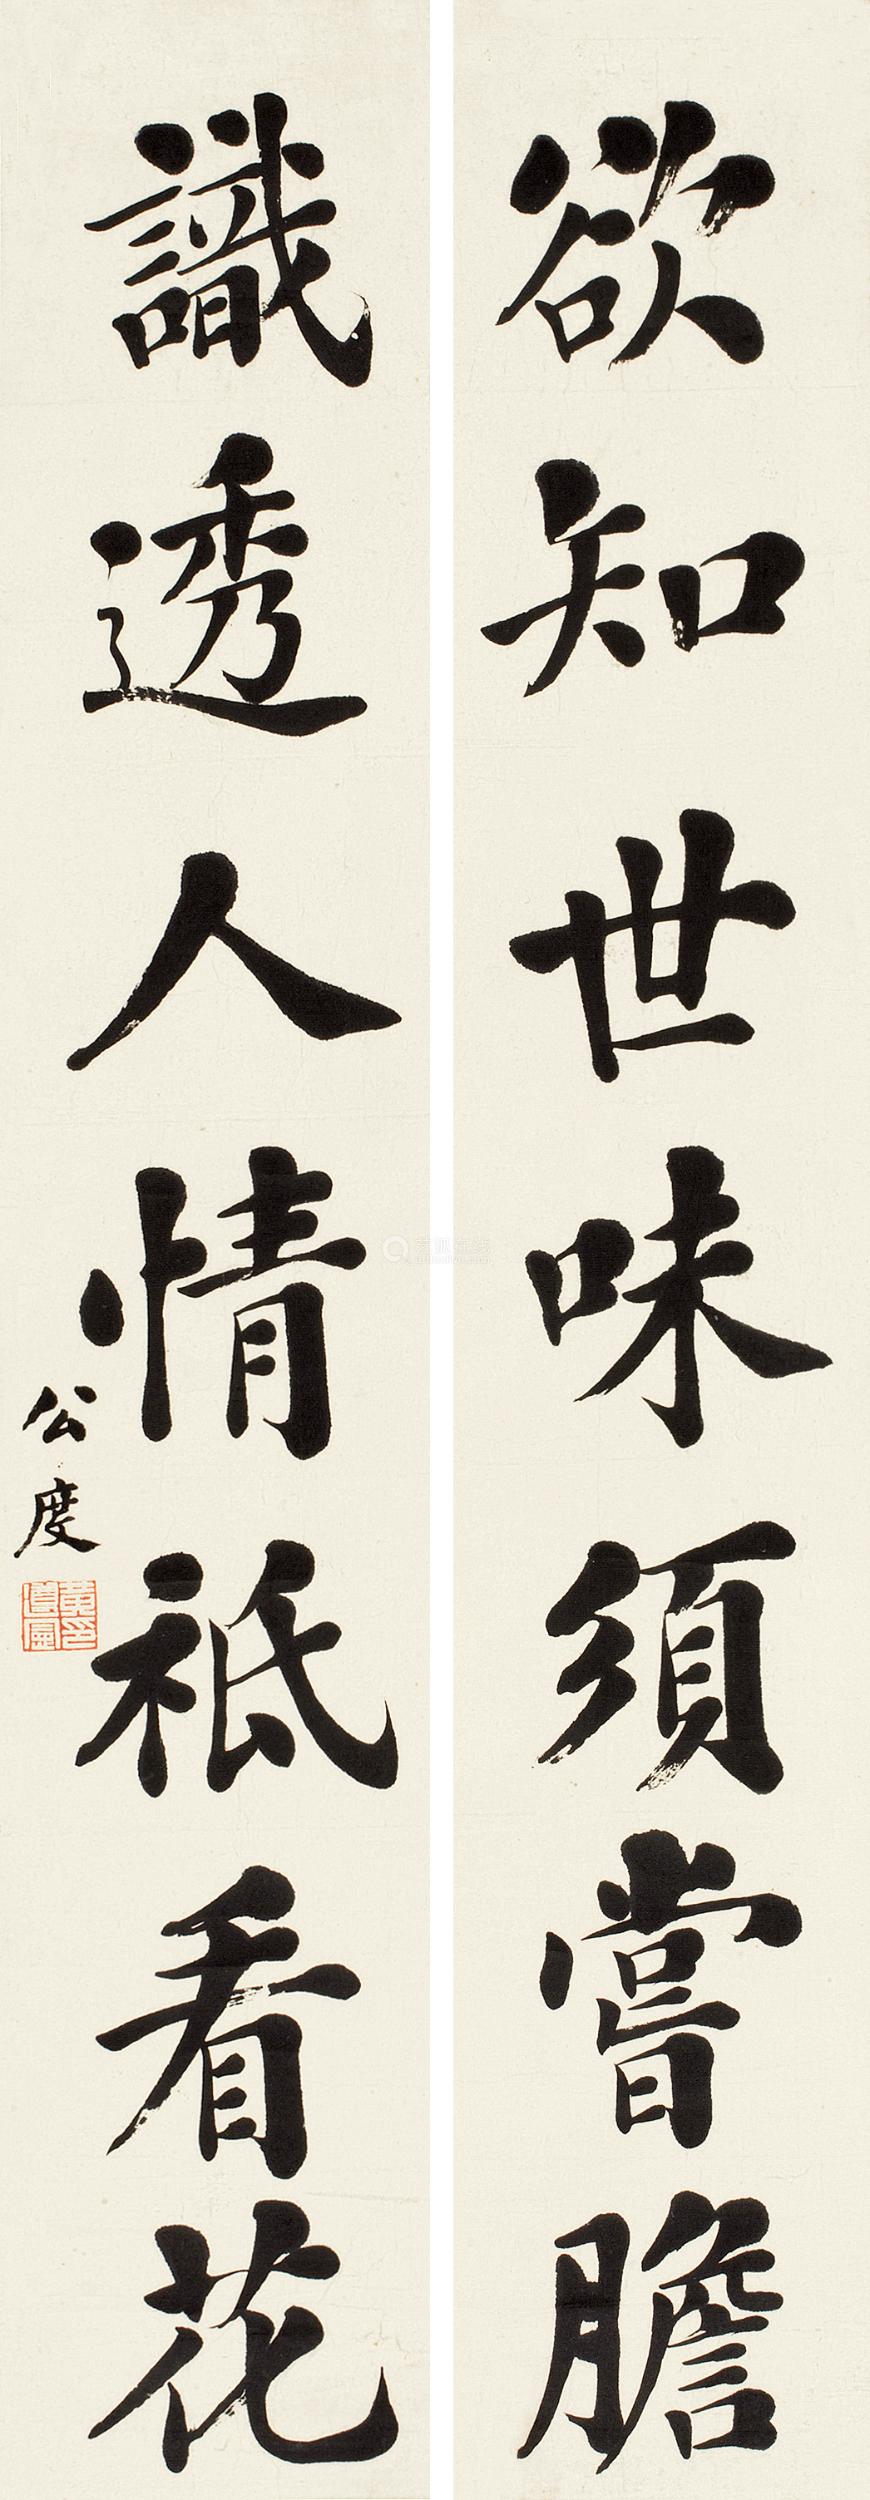 欲知世味須嘗膽
識透人情衹看花
公度
黃遵憲印